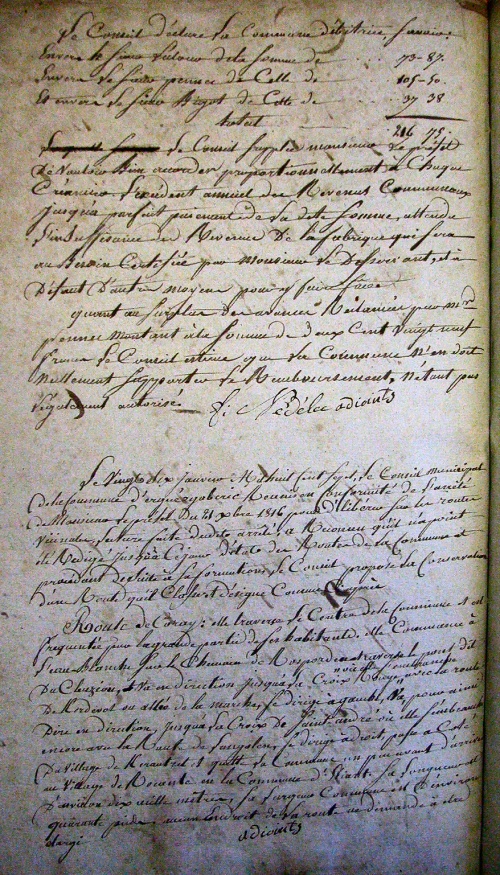 Le Conseil déclare la Commune débitrice savoir:
Envers le Sieur de la Somme de 73-87.
Envers le Sieur pennec de Celle de 105-50.
Et envers le Sieur Bigot de Celle de 37 38
total 216 75.
le Conseil supplie monsieur le préfet
de vouloir bien accorder proportionnellement à Chaque
Créancier l'excédent annuel des Revenus Communaux
jusqu'à parfait paiement de la dite Somme, attendu
l'insuffisance des Revenus De la fabrique qui sera
au Besoin Certifiée par Monsieur le Desservant, et à
Défaut D'autre moyen pour y faire face
quant au surplus des avances Réclamées par mr
pennec montant à la Somme de Deux Cent vingt neuf
francs le Conseil estime que la Commune N'en doit
Nullement supporter le Remboursement, N'étant pas
légalement autorisé.
adjoint

Le vingt dix janvier Mil huit Cent Sept, le Conseil municipal
de la Commune d'ergué gabéric Réuni en Conformité de l'arrêté
de Monsieur le préfet Du 21 xbre 1816 pour délibérer sur les routes
vicinales, lecture faite dudit arrêté, a Reconnu qu'il n'a point
été Rédigé jusqu'à Ce jour D'état des Routes de la Commune et
procédant de suite à sa formation, le Conseil propose la Conservation
d'une Route qu'il Classe et désigne Comme
Route de Coray: elle traverse le Centre de la Commune et est
fréquentée par la grande partie de ses habitants. elle Commence à
l'eau blanche sur le Chemin de Rosporden traverse le pont dit
Du Cleuziou, et va en direction jusqu'à la Croix
De Kerdévot ou allée de la marche, se dirige à gauche,
Dire en direction, jusqu'à la Croix de Saint andré où elle s'embranche
encore avec la Route de Langolen, se dirige à droit, passe à Côté
Du village de et quitte la Commune
au village de en la Commune d'Elliant. Sa longueur est
D'environ dix mille mètres, Sa largeur Commune est D'environ
quarante pieds, aucun endroit de la route ne demande à être
élargi
adjoint